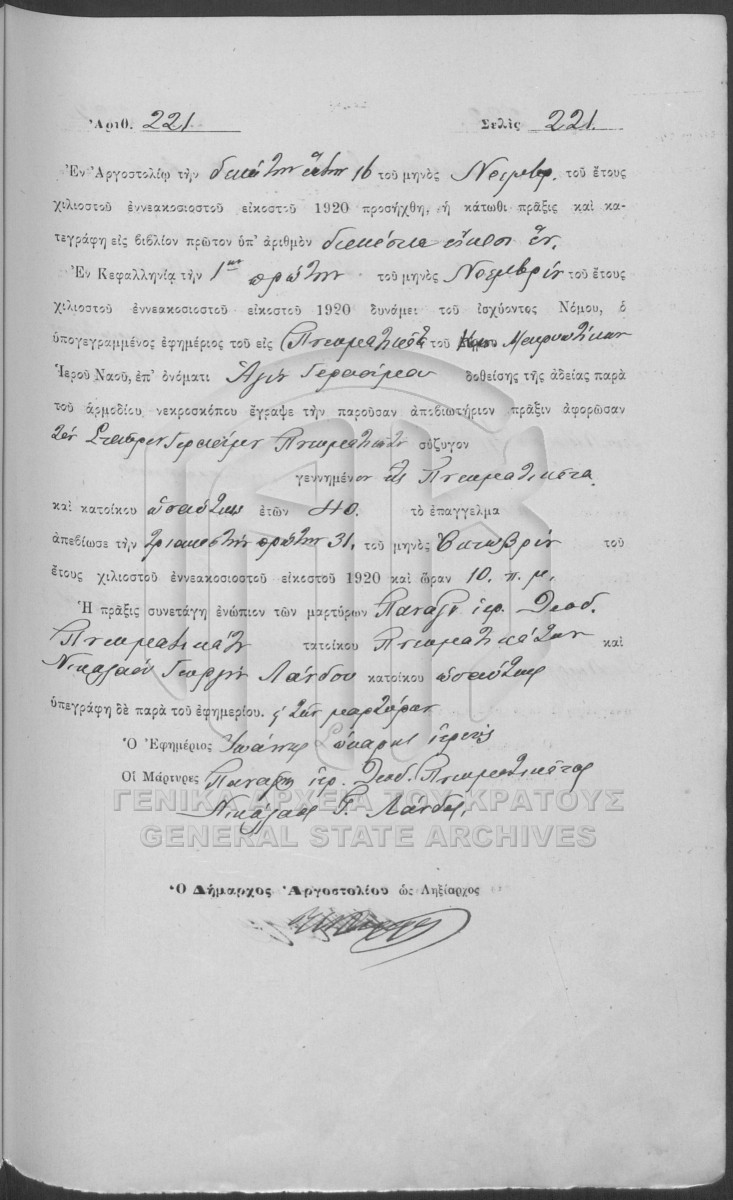 Ἀριθ. 221 Σελὶς 221.
Ἐν Ἀργοστολίῳ τὴν δεκάτην ἕκτην 16 τοῦ μηνὸς Νοεμβρ. τοῦ ἔτους
χιλιοστοῦ ἐννεακοσιοστοῦ εἰκοστοῦ 1920 προσήχθη, ἡ κάτωθι πρᾶξις καὶ κα-
τεγράφη εἰς βιβλίον πρῶτον ὑπ' ἀριθμὸν διακόσια εἴκοσι ἕν.
Ἐν Κεφαλληνίᾳ τὴν 1ην πρώτην τοῦ μηνὸς Νοεμβρίου τοῦ ἔτους
χιλιοστοῦ ἐννεακοσιοστοῦ εἰκοστοῦ 1920 δυνάμει τοῦ ἰσχύοντος Νόμου, ὁ
ὑπογεγραμμένος ἐφημέριος τοῦ εἰς τοῦ
Ἱεροῦ Ναοῦ, ἐπ' ὀνόματι Ἁγίου Γερασίμου δοθείσης τῆς ἀδείας παρὰ
τοῦ ἁρμοδίου νεκροσκόπου ἔγραψε τὴν παροῦσαν ἀποβιωτήριον πρᾶξιν ἀφορῶσαν
τὸν Σταῦρον Γερασίμου Πνευματικάτον σύζυγον
γεννημένον εἰς Πνευματικάτα
καὶ κατοίκου ὡσαύτως ἐτῶν 40. τὸ ἐπαγγελμα
ἀπεβίωσε τὴν τριακοστὴν πρώτην 31. τοῦ μηνὸς Ὀκτωβρίου τοῦ
ἔτους χιλιοστοῦ ἐννεακοσιοστοῦ εἰκοστοῦ 1920 καὶ ὥραν 10. π. μ.
Ἡ πρᾶξις συνετάγη ἐνώπιον τῶν μαρτύρων Παναγῆ ἱερ. Θεοδ.
Πνευματικάτου τατοίκου Πνευματικάτων καὶ
Νικολάου Γεωργίου Λάνδου κατοίκου ὡσαύτως
ὑπεγράφη δὲ παρὰ τοῦ ἐφημερίου. ς τῶν μαρτύρων
Ὁ Ἐφημέριος Ἰωάννης ἱερεύς
Οἱ Μάρτυρες Παναγῆς ἱερ. Θεοδ. Πνευματικάτος
Νικόλαος Γ. Λάνδος.
ΓΕΝΙΚΑ ΑΡΧΕΙΑ ΤΟΥ ΚΡΑΤΟΥΣ
GENERAL STATE ARCHIVES
Ὁ Δήμαρχος Ἀργοστολίου ὡς Ληξίαρχος